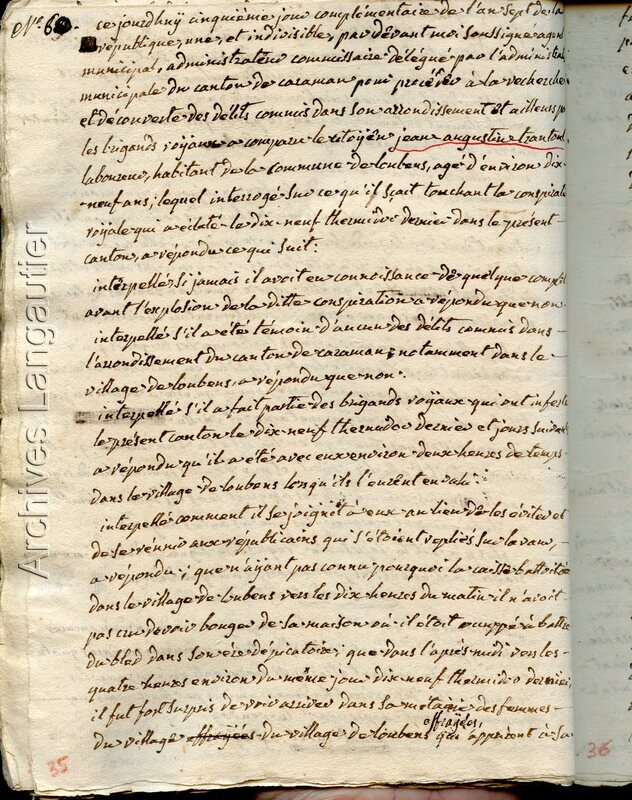 N°. 6
ce jourd'huy cinquième jour complémentaire de l'an sept de la
république, une, et indivisible, par devant moi soussigné agent
municipal, administrateur commissaire délégué par l'administra
municipale du canton de caraman pour procéder à la recherche
et découverte des délits commis dans son arrondissement et ailleurs par
les brigands royaux a comparu le citoyen jean augustin trantoul
laboureur, habitant de la commune de loubens, agé d'environ dix
neuf ans; lequel interrogé sur ce qu'il sçait touchant la conspira
royale qui a éclaté le dix neuf thermidor dernier dans le présent
canton, a répondu ce qui suit:
interpellé si jamais il avoit eu connoissance de quelque complot
avant l'explosion de la ditte conspiration a répondu que non.
interpellé s'il a été témoin d'aucun des délits commis dans
l'arrondissement du canton de caraman, notamment dans le
village de loubens, a répondu que non.
interpellé s'il a fait partie des brigands royaux qui ont infesté
le présent canton le dix neuf thermidor dernier et jours suivants
a répondu qu'il a été avec eux environ deux heures de temps
dans le village de loubens lorsqu'ils l'eurent envahi
interpellé comment il se joignit à eux au lieu de les éviter et
de se réunir aux républicains qui s'étoient repliés sur lavaur,
a répondu; que n'ayant pas connu pourquoi la caisse battoit
dans le village de loubens vers les dix heures du matin il n'avoit
pas cru devoir bouger de sa maison où il étoit occuppé à battre
du bled dans son aire dépicatoire; que dans l'après midi vers les
quatre heures environ du même jour dix neuf thermidor dernier,
il fut fort surpris de voir arriver dans sa métairie des femmes
effrayées,
du village effrayées du village de loubens qui apprirent à sa
35
36
Archives Langautier